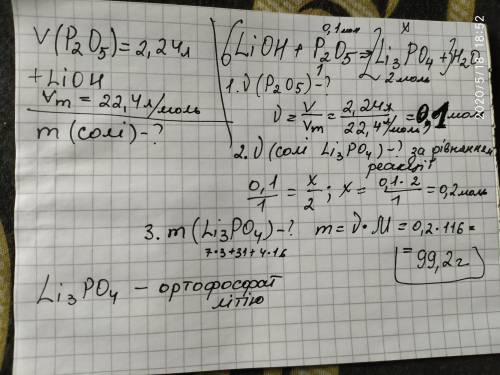 V(P₂O₅)=2,24л
+LiOH
Vm = 22,4л/моль
m (солі)-?
0,1моль x
6LiOH + P₂O₅ ⇒ 2Li₃PO₄ + 3H₂O
1 2моль
1. ν(P₂O₅)-?
ν = V/Vm = 2,24л/22,4л/моль = 0,1 моль
2. ν(солі Li₃PO₄)-? за рівнянням
реакції
0,1/1 = x/2; x = 0,1·2/1 = 0,2моль
3. m(Li₃PO₄)-? m = ν·M = 0,2·116 =
7·3+31+4·16
= 99,2г
Li₃PO₄ – ортофосфат
літію
2020/5/18 18:52